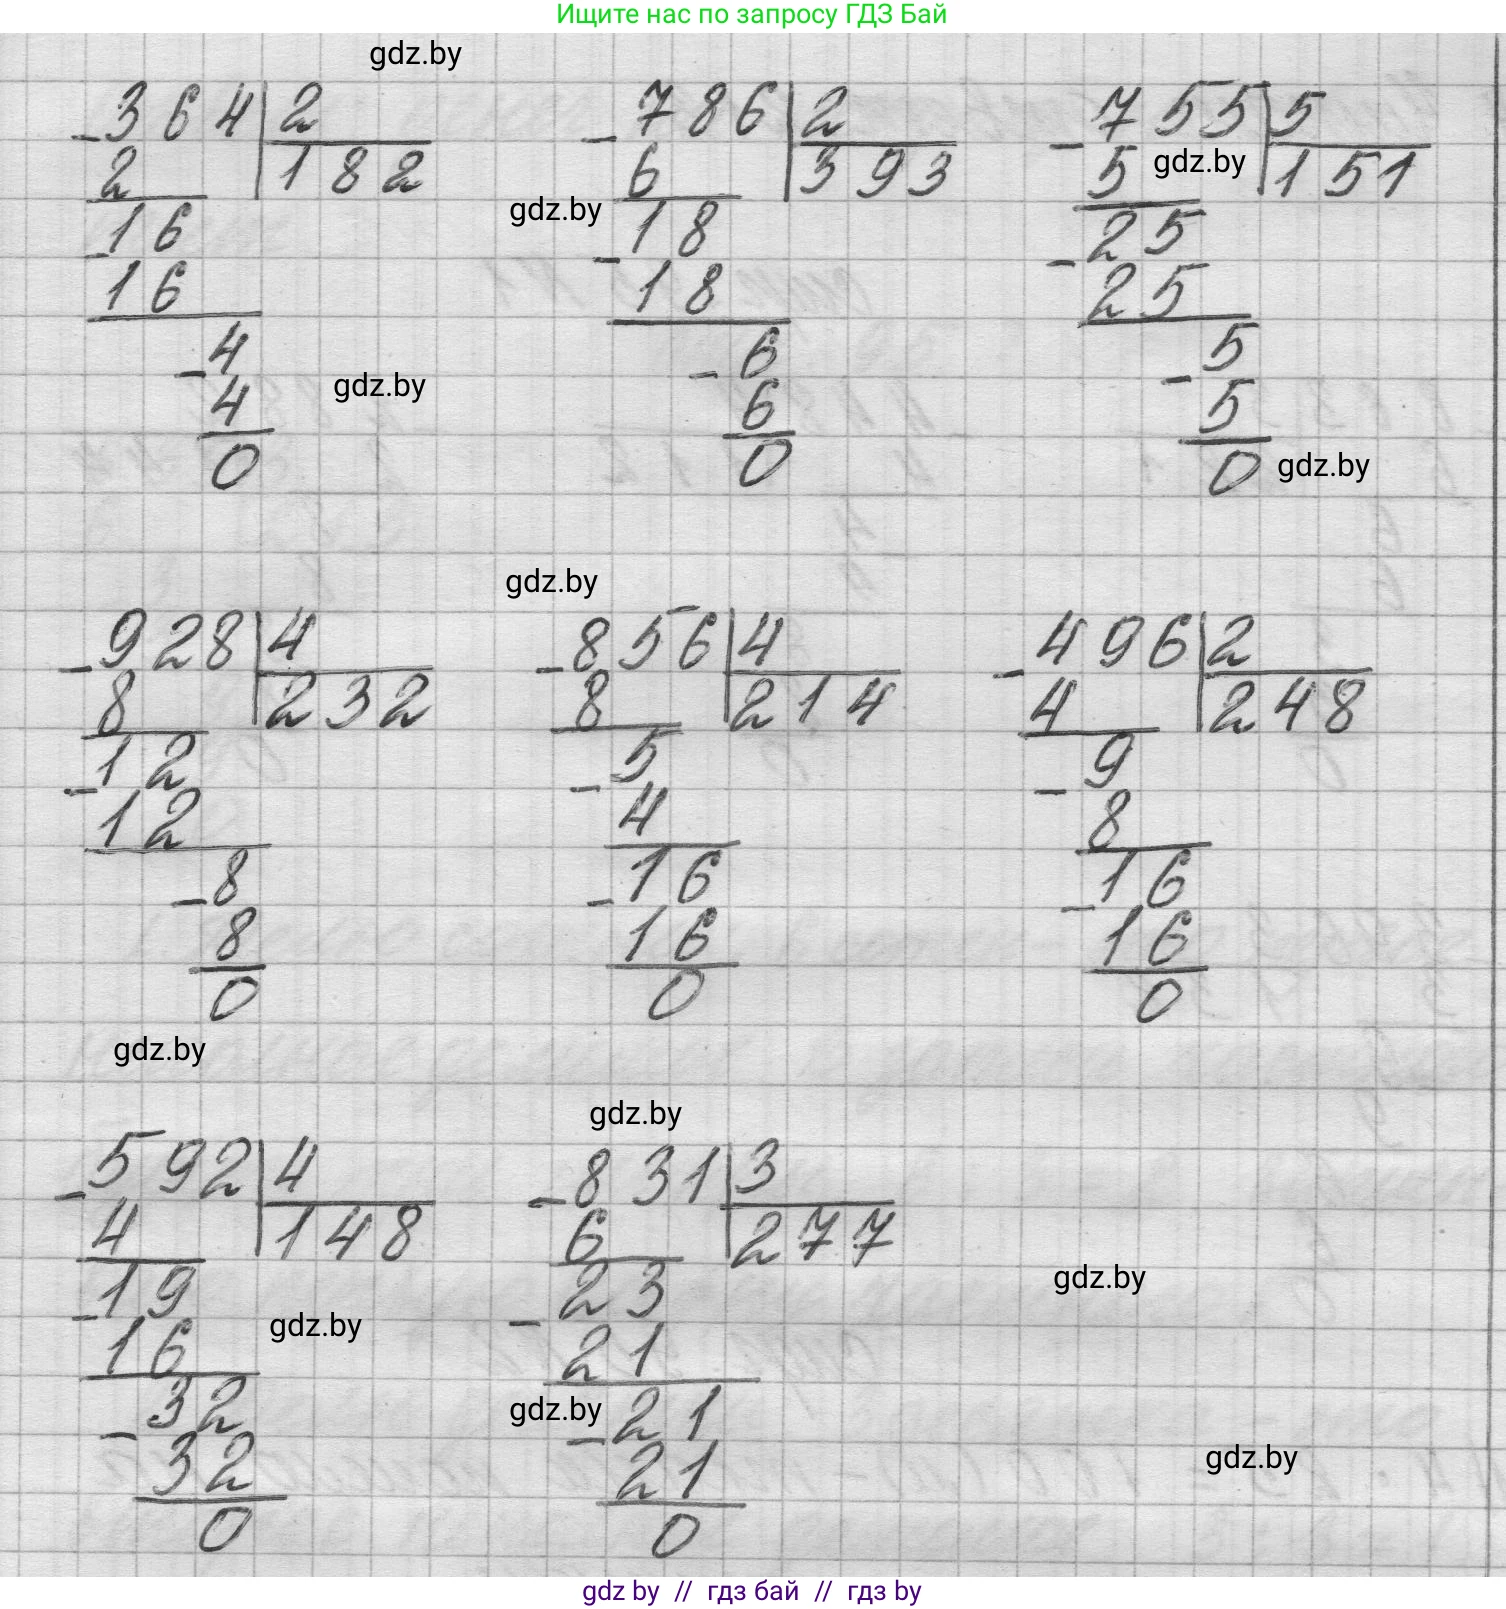 Ищите нас по запросу ГДЗ Бай
gdz.by
-364|2 -786|2 -755|5
2 |182 6 |393 5 gdz.by |151
gdz.by
-16 -18 -25
16 18 25
-4 -6 -5
gdz.by
4 6 5
0 0 0 gdz.by
gdz.by
-928|4 -856|4 -496|2
8 |232 8 |214 4 |248
-12 -5 -9
12 4 8
-8 -16 -16
8 16 16
0 0 0
gdz.by
gdz.by
-592|4 -831|3
4 |148 6 |277
-19 -23 gdz.by
gdz.by
16 21
-32 gdz.by -21
32 21 gdz.by
0 0
gdz by // гдз бай // гдз by